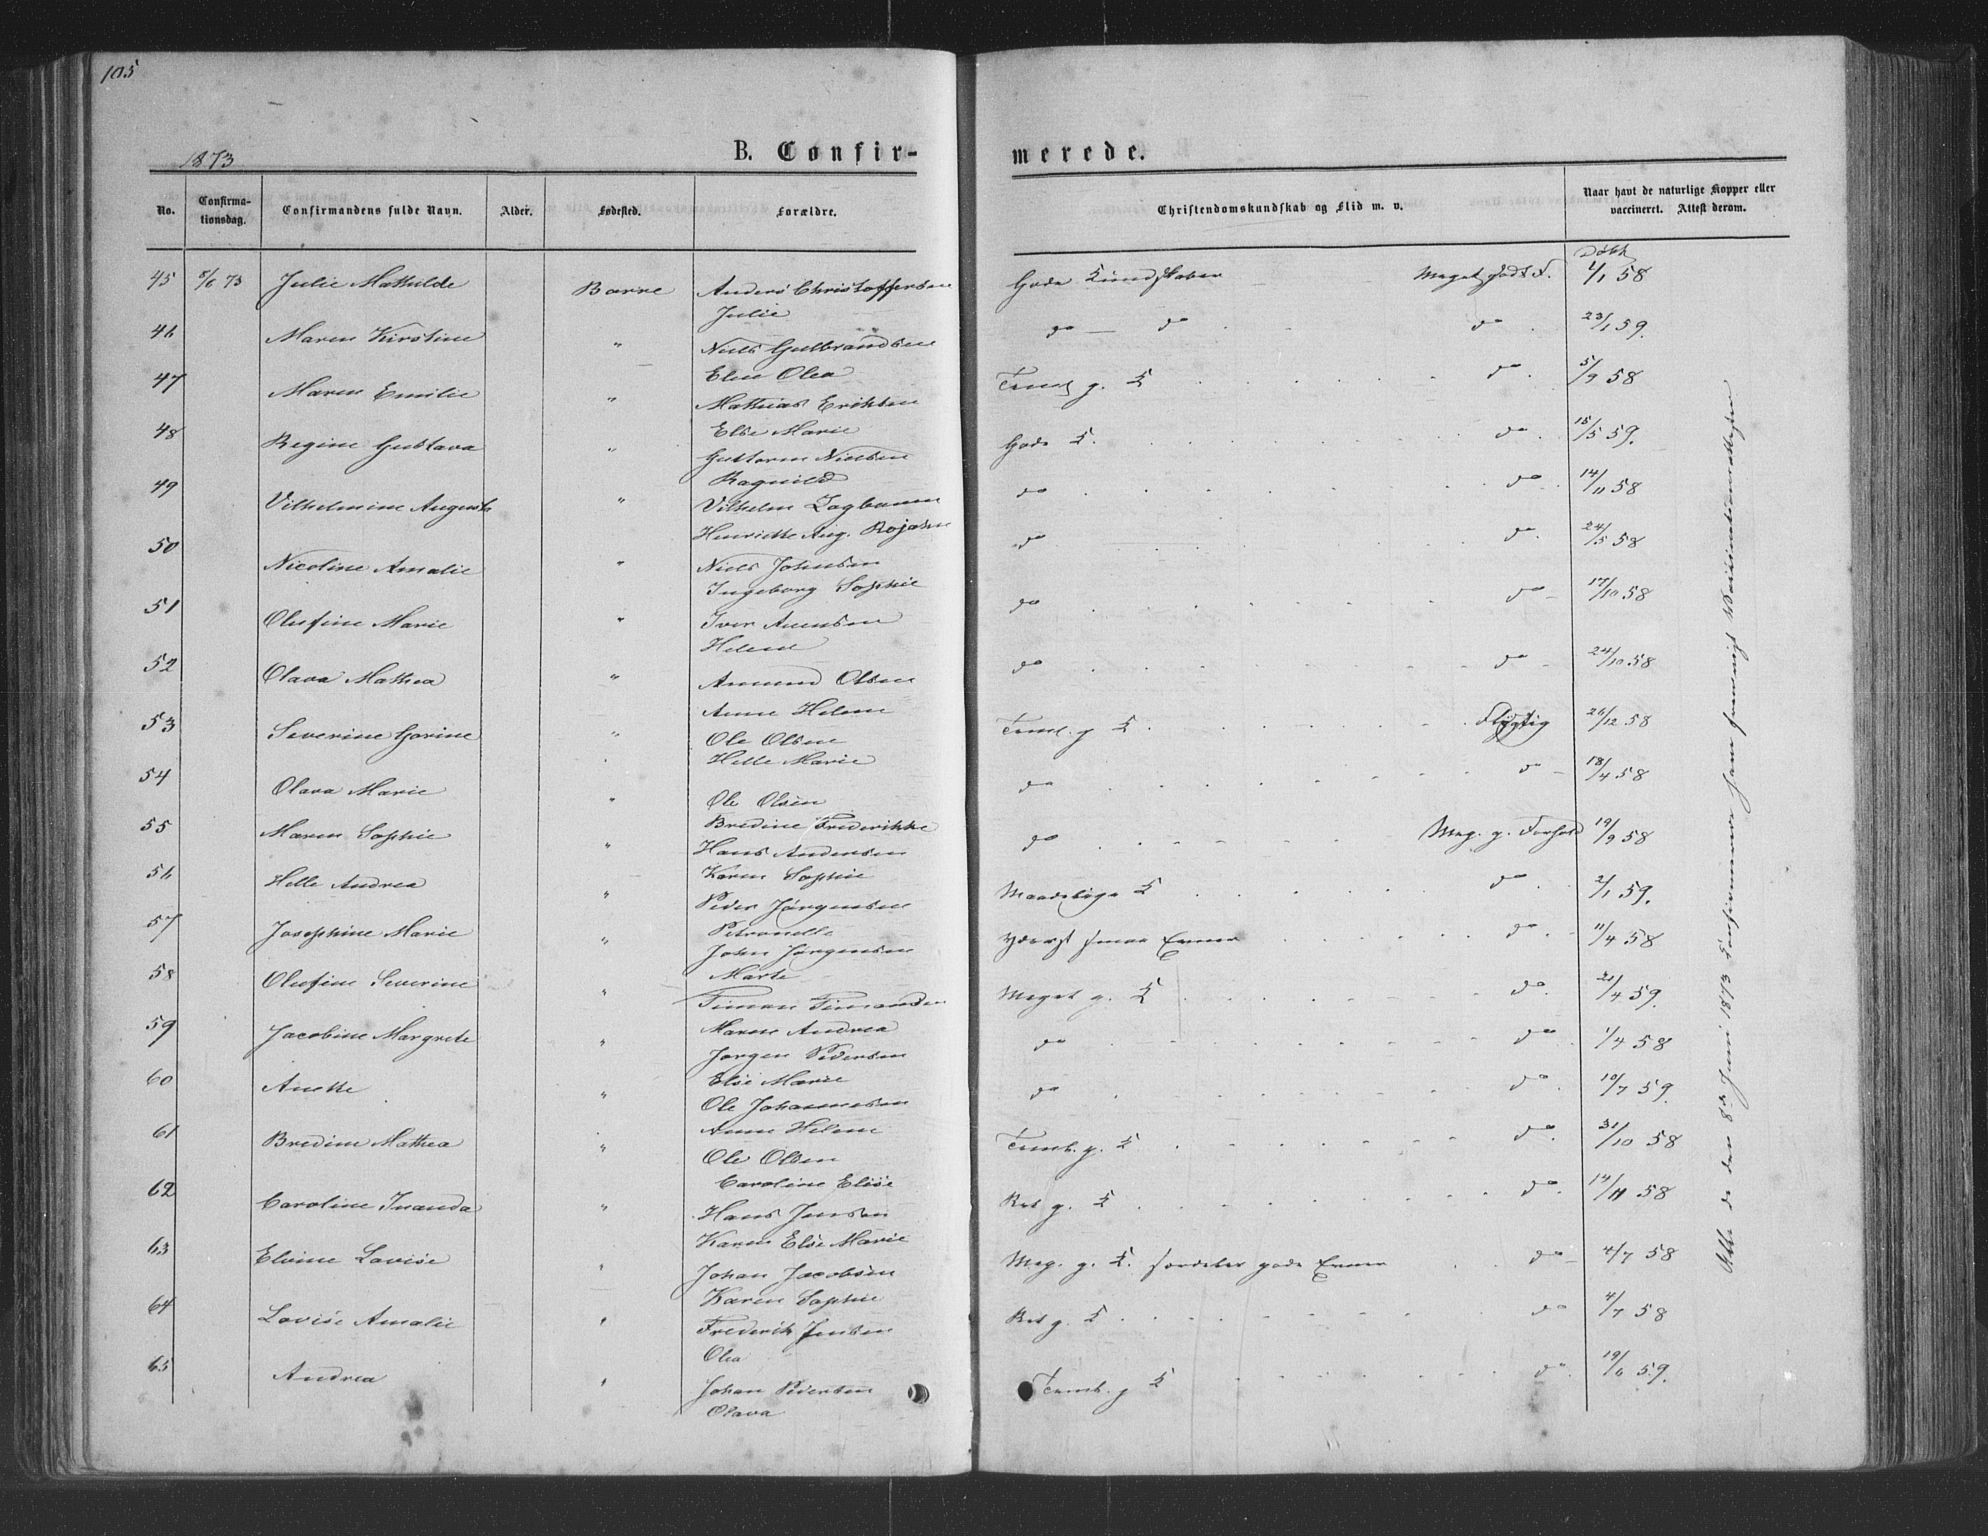 105
1873
B. Confir-
merede.
No.
Confirma-
tionsdag.
Confirmandens fulde Navn.
Alder.
Fødested.
Forældre.
Christendomskundskab og Flid m. v.
Naar havt de naturlige Kopper eller
vaccineret. Attest derom.
Døbt
45 8/6 73 Julie Mathilde Borre Anders Christoffersen Gode Kundskaber Meget godt F. 4/1 58
Julie
46 Maren Kirstine " Niels Gulbrandsen do — do do 23/1 59.
Eline Olea
47 Maren Emilie " Mathias Eriksen g. K do 5/9 58
Else Marie
48 Regine Gustava " Guttorm Nielsen Gode K. do 15/5 59.
Ragnild
49 Vilhelmine Augusta " Vilhelm do do 14/11 58
Henriette Aug. Rojahn
50 Nicoline Amalie " Niels Johnsen do do 24/5 58
Ingeborg Sophie
51 Olufine Marie " Iver Amundsen do do 17/10 58
Helene
52 Olava Mathea " Amund Olsen do do 24/10 58
Anne Helene
53 Severine Gorine " Ole Olsen g K Flygtig 26/12 58
Helle Marie
54 Olava Marie " Ole Olsen do do 18/4 58
Bredine Frederikke
55 Maren Sophie " Hans Andersen do Meg. g. Forhold 19/9 58
Karen Sophie
56 Helle Andrea " Peder Jørgensen Maadelige K do 2/1 59.
Petronelle
57 Josephine Marie " John Jørgensen yderst smaa Evner do 11/4 58
Marte
58 Olufine Severine " Timan Meget g. K do. 21/4 59.
Maren Andrea
59 Jacobine Margrete " Jørgen Pedersen do do 1/4 58
Else Marie
60 Anette " Ole Johannesen do do 10/7 59.
Anne Helene
61 Bredine Mathea " Ole Olsen g. K do. 31/10 58
Caroline Elise
62 Caroline Inanda " Hans Jensen Ret g. K. do. 14/11 58
Karen Else Marie
63 Elvine Lovise " Johan Jacobsen Meg. g. K. særdeles gode Evner do 4/7 58
Karen Sophie
64 Lovise Amalie " Frederik Jensen Ret g. K do 4/7 58
Olea
65 Andrea " Johan Pedersen g K do. 19/6 59.
Olava
Alle de den 8de Juni 1873 Confirmerede have fremvist Vaccinationsattester